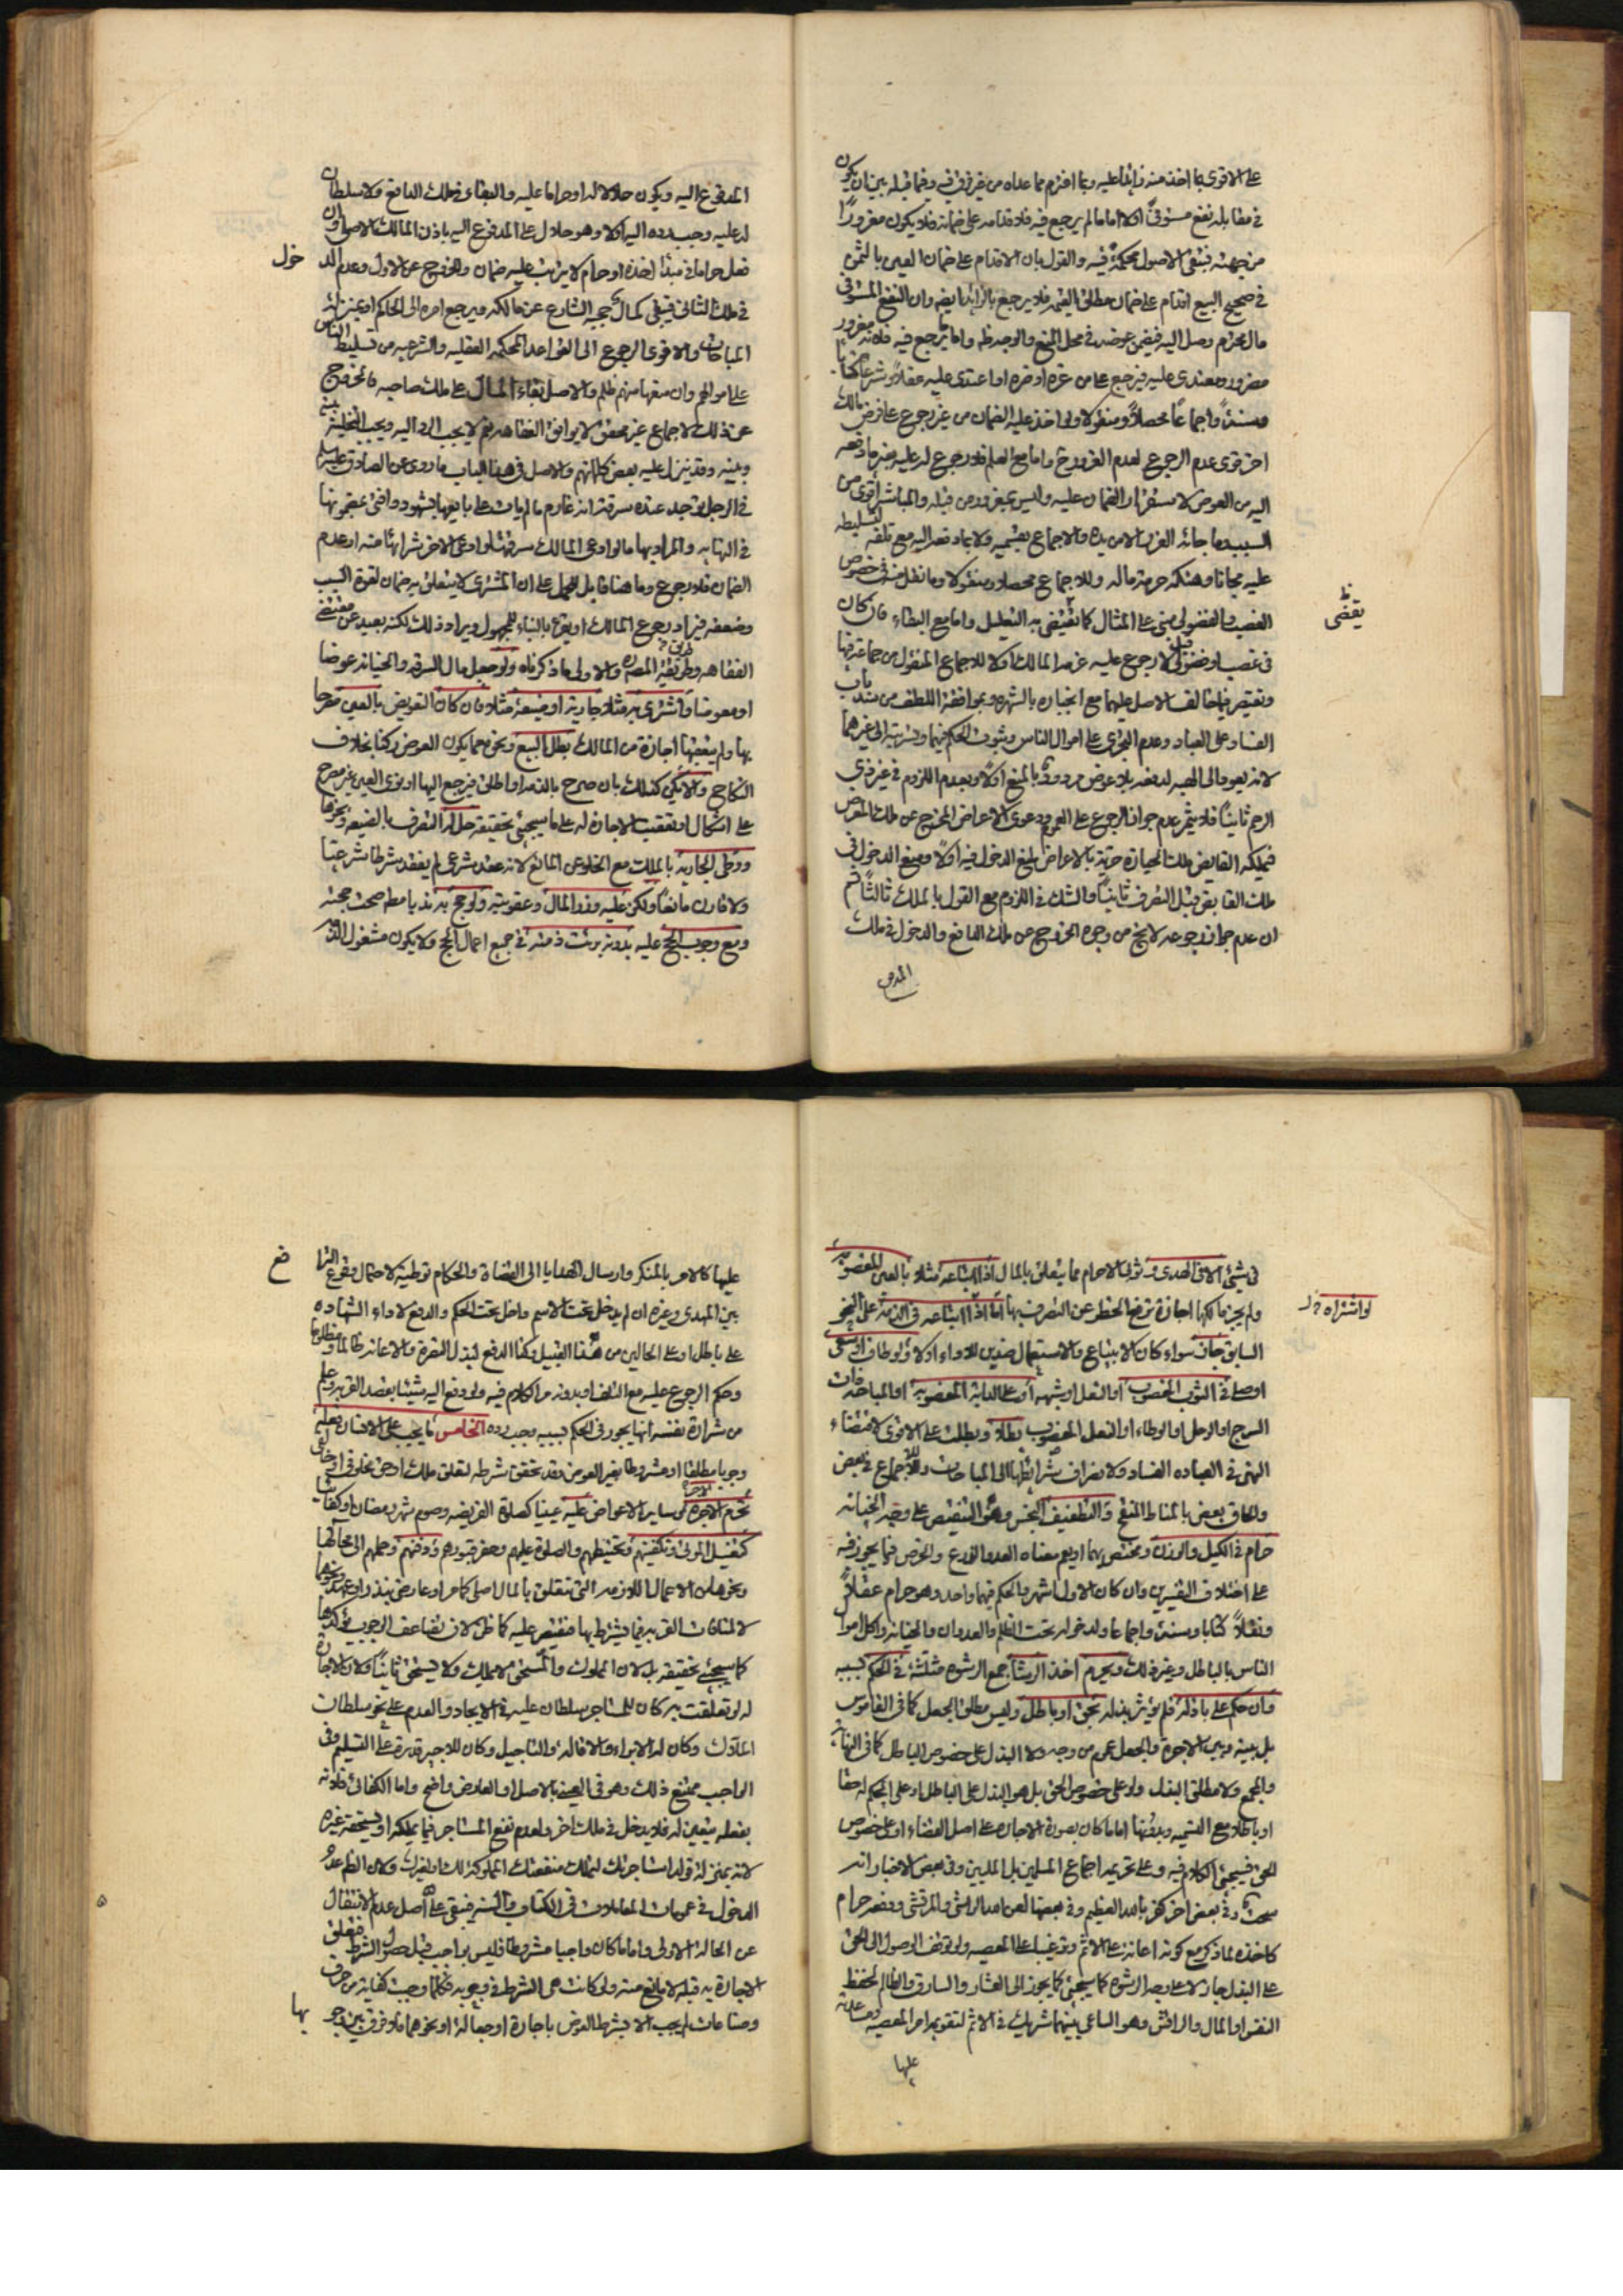 على الاقوى بما اخذ منه زائدا عليه وبما اغترم مما عداه من غير فرق فيه وفيما قبله بين ان يكون
في مقابله نفع مستوفى اولا اما ما لم يرجع فيه فلاقدامه على ضمانه فلا يكون مغرورا
من جهته فتبقى الاصول محكمة فيه والقول بان الاقدام على ضمان العين بالثمن
في صحيح البيع اقدام على ضمان مطلق القيمة فلا يرجع بالزائد ايضا وان النفع المستوفى
مال محترم وصل اليه فيضمن عوضه في محل المنع والوجه ظ واما ما يرجع فيه فلانه مغرور
مضرور ومعتدى عليه فيرجع على من غره او ضره او اعتدى عليه عقلا وشرعا كتابا
وسنة واجماعا محصلا ومنقولا ولو اخذ عليه الضمان من غير رجوع على فرض مالك
اخر قوى عدم الرجوع لعدم الغرور ح واما مع العلم فلا رجوع له عليه بغير ما دفعه
اليه من العوض لاستقرار الضمان عليه وليس بمغرور من قبله والمباشر اقوى من
السبب وما جائه الغرر الا من يده والاجماع بقسميه ولا بما دفعه اليه مع تلفه لتسليطه
عليه مجانا وهتكه حرمة ماله وللاجماع محصلا ومنقولا وما نقل منه في خصوص
الغصب والفضولي مبنى على المثال كما يقتضى به التعليل واما مع البقاء فان كان
يقضى
في غصب او فضولي قيل لا رجوع عليه غرمه المالك اولا للاجماع المنقول من جماعة فيها
ويقتصر فيما خالف الاصل عليهما مع انجباره بالشهرة وبموافقة اللطف من سد باب
الفساد على العباد وعدم التجرى على اموال الناس وثبوت الحكم فيها وتسريته الى غيرهما
لانه يعود الى الهبة لدفعه بلا عوض مردود بالمنع اولا وبعدم اللزوم في غير ذى
الرحم ثانيا فلا يثمر عدم جواز الرجوع على العموم ودعوى الاعراض المخرج عن ملك المعرض
فيملكه القابض ملك الحيازة حرية بالاعراض لمنع الدخول فيه اولا ومنع الدخول في
ملك القابض قبل التصرف ثانيا والشك في اللزوم مع القول بالملك ثالثا ثم
ان عدم جواز رجوعه لا يخ من وجوه الخروج عن ملك الدافع والدخول في ملك
المدفوع
المدفوع اليه ويكون حلالا له او حراما عليه والبقاء في ملك الدافع ولا سلطان
له عليه وجب رده اليه اولا وهو حلال على المدفوع اليه باذن المالك الاصلى وان
فعل حراما في مبدء اخذه او حرام لا يترتب عليه ضمان والخروج عن الاول وعدم الدخول
في ملك الثاني فيبقى كمال حجبه الشارع عن مالكه ويرجع امره الى الحاكم او بمنزلة
المباحات والاقوى الرجوع الى القواعد المحكمة العقليه والشرعيه من تسليط الناس
على اموالهم وان منعها منهم ظلم والاصل بقاء المال على ملك صاحبه فالخروج
عن ذلك لاجماع غير محقق لا يوافق الفقاهه نعم لا يجب الرد اليه ويجب التخلية بينه
وبينه وقد ينزل عليه بعض كلماتهم والاصل في هذا الباب ما روى عن الصادق عليه السلم
في الرجل يوجد عنده سرقة انه غارم ما لم يات على بايعها بشهود وافتى بمضمونها
في النهايه والمراد بها ما لو ادعى المالك سرقتها وادعى الاخر شرائها منه او عدم
الضمان فلا رجوع وما هنا قابل للحمل على ان المشترى لا يتعلق به ضمان لقوة السبب
وضعفه فيراد رجوع المالك او يقرء بالبناء للمجهول ويراد ذلك لكنه بعيد عن مقتضى
الفقاهه وطريقة المصره والاولى ما ذكرناه ولو جعل مال السرقة والخيانه عوضا
او معوضا واشترى به مثلا جارية او ضيعة مثلا فان كان التعويض بالعين مصرحا
بها ولم يعقبها اجازة من المالك بطل البيع ونحوه مما يكون العوض ركنا بخلاف
النكاح والا يكن كذلك بان صرح بالذمه او اطلق فيرجع اليها او نوى العين غير مصرح
على اشكال او تعقبت الاجازه له على ما سيجئ تحقيقه حل له التصرف بالضيعه ونحوها
ووطى الجارية بالملك مع الخلو عن المانع لانه عقد شرعى لم يفقد شرطا شرعيا
ولا قارن مانعا ولكن عليه وزر المال وعقوبته ولو حج به ندبا مطم صحت حجته
ومع وجوب الحج عليه بدونه برئت ذمته في جميع اعمال الحج ولا يكون مشغول الذمه
في شئ الا في الهدى وثوبى الاحرام مما يتعلق بالمال اذا ابتاعه مثلا بالعين المغصوبه
ولم يجز مالكها اجازة ترفع الحظر عن التصرف بها اما اذا ابتاعه في الذمة على النحو
لو اشتراه خ ل
السابق جاز سواء كان الابتياع والاستعمال بقصد الاداء اولا ولو طاف او سعى
او صلى في الثوب المغصوب او النعل او شبهه او على الدابة المغصوبة او المباحه ذات
السرج او الرحل او الوطاء او النعل المغصوب بطلا وبطلت على الاقوى لاقتضاء
النهى في العباده الفساد ولانصراف شرائطها الى المباحات وللاجماع في بعض
والحاق بعض بالمناط المنقح والتطفيف البخس وهو التنقيص على وجه الخيانه
حرام في الكيل والوزن ويختص بهما او يعم معناه العد والذرع والخرص فيما يجوز فيه
على اختلاف التفسيرين وان كان الاول اشهر والحكم فيهما واحد وهو حرام عقلا
ونقلا كتابا وسنة واجماعا ولدخوله تحت الظلم والعدوان والخيانه واكل اموال
الناس بالباطل وغير ذلك ويحرم اخذ الرشا جمع الرشوه مثلثة في الحكم بسببه
وان حكم على باذله فلم يؤثر بذله بحق او باطل وليس مطلق الجعل كما في القاموس
بل بينه وبين الاجرة والجعل عموم من وجه ولا البذل على خصوص الباطل كما في النهايه
والمجمع ولا مطلق البذل ولو على خصوص الحق بل هو البذل على الباطل او على الحكم له حقا
او باطلا مع التسميه وبدونها اما ما كان بصورة الاجاره على اصل القضاء او على خصوص
الحق فسيجئ الكلام فيه وعلى تحريمه اجماع المسلمين بل المليين وفى بعض الاخبار انه
سحت وفى بعض اخر كفر بالله العظيم وفى بعضها لعن الله الراشى والمرتشى ودفعه حرام
كاخذه لما ذكر مع كونه اعانة على الاثم وترغيبا على المعصيه ولو توقف الوصول الى الحق
على البذل جاز لا على وجه الرشوه كما سيجئ كما يجوز الى العشار والسارق والظالم لحفظ
النفس او المال والرائش وهو الساعى بينهما شريك في الاثم لتقويه امر المعصيه وحملانه
عليها
عليها كالامر بالمنكر وارسال الهدايا الى القضاة والحكام توطئة لاحتمال وقوع النزاع
بين المهدى وغيره ان لم يدخل تحت الاسم داخل تحت الحكم والدفع لاداء الشهاده
على باطل او على الحالين من هذا القبيل وكذا الدفع لبذل النصرة والاعانه ظالما او مظلوما
وحكم الرجوع عليه مع التلف او بدونه مر الكلام فيه ولو دفع اليه شيئا بقصد القربه وعلم
من شرارة نفسه انها يجور في الحكم بسببه وجب رده الخامس ما يجب على الانسان فعله
وجوبا مطلقا او مشروطا بغير العوض وقد تحقق شرطه لتعلق ملك او حق مخلوقى او خالقى
تحرم الاجرة كسائر الاعواض عليه عينيا كصلاة الفريضه وصوم شهر رمضان او كفائيا
كتغسيل الموتى وتكفينهم وتحنيطهم والصلوة عليهم وحفر قبورهم ودفنهم وحملهم الى محالها
ونحوها من الاعمال اللازمه التى تتعلق بالمال اصلى كما مر او عارضى بنذر او عهد ونحوهما
لا لمنافات القربه فيما يشترط بها فتقتصر عليه كما ظن لان تضاعف الوجوب يؤكدها
كما سيجئ تحقيقه بل لان المملوك والمستحق لا يملك ولا يستحق ثانيا ولان الاجارة
له لو تعلقت به كان للمستاجر سلطان عليه في الايجاد والعدم على نحو سلطان
الملاك وكان له الابراء والاقاله والتاجيل وكان للاجير قدرة على التسليم وفى
الواجب ممتنع ذلك وهو في العينى بالاصل او العارض واضح واما الكفائى فلانه
بفعله يتعين له فلا يدخل في ملك اخر ولعدم نفع المستاجر فيما يملكه او يستحقه غيره
لانه بمنزلة قوله استاجرتك لتملك منفعتك المملوكة لك او لغيرك ولان الظ عدم
الدخول في عمومات المعاملات في الكتاب والسنه فيبقى على اصل عدم الانتقال
عن الحالة الاولى واما ما كان واجبا مشروطا فليس بواجب قبل حصول الشرط فتعلق
الاجارة به قبله لا مانع منه ولو كانت هى الشرط في وجوبه فكلما وجب كفاية من حرف
وصناعات لم يجب الا بشرط العوض باجارة او جعالة او نحوهما فلا فرق بين وجوبها